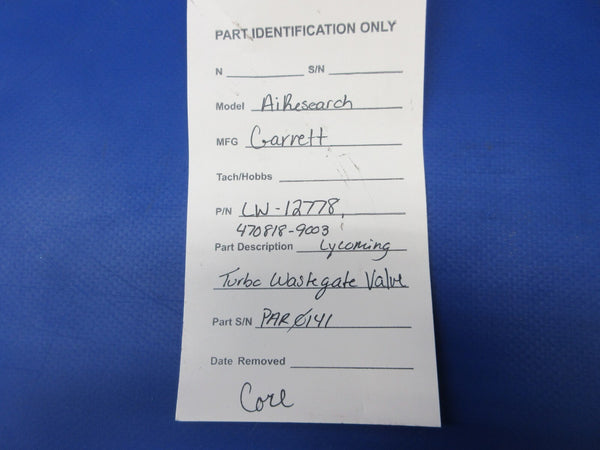 PART IDENTIFICATION ONLY
N S/N
Model AiResearch
MFG Garrett
Tach/Hobbs
P/N LW-12778,
470818-9003
Part Description Lycoming
Turbo Wastegate Valve
Part S/N PAR0141
Date Removed
Core